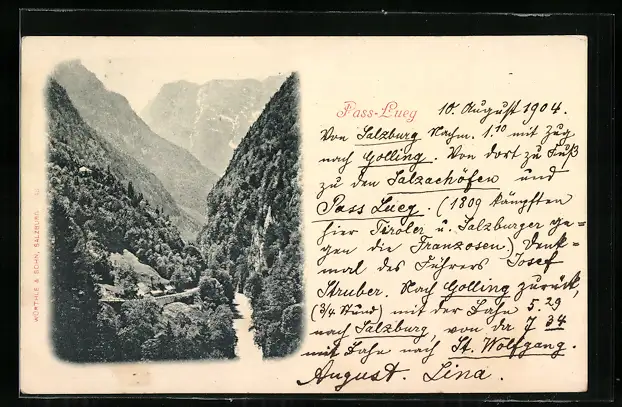 Pass-Lueg
10. August 1904.
Von Salzburg Nachm. 1.10 mit Zug
nach Golling. Von dort zu Fuß
zu den Salzachöfen und
Pass Lueg. (1809 kämpften
hier Tiroler u. Salzburger ge=
gen die Franzosen.) Denk=
mal des Führers Josef
Struber. Nach Golling zurück,
(3/4 Stund) mit der Bahn 5.29
nach Salzburg, von da 7 34
mit Bahn nach St. Wolfgang.
August. Lina.
WÜRTHLE & SOHN, SALZBURG